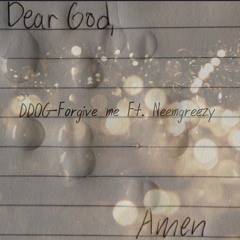 Dear God,
DDOG-Forgive me Ft. Neemgreezy
Amen